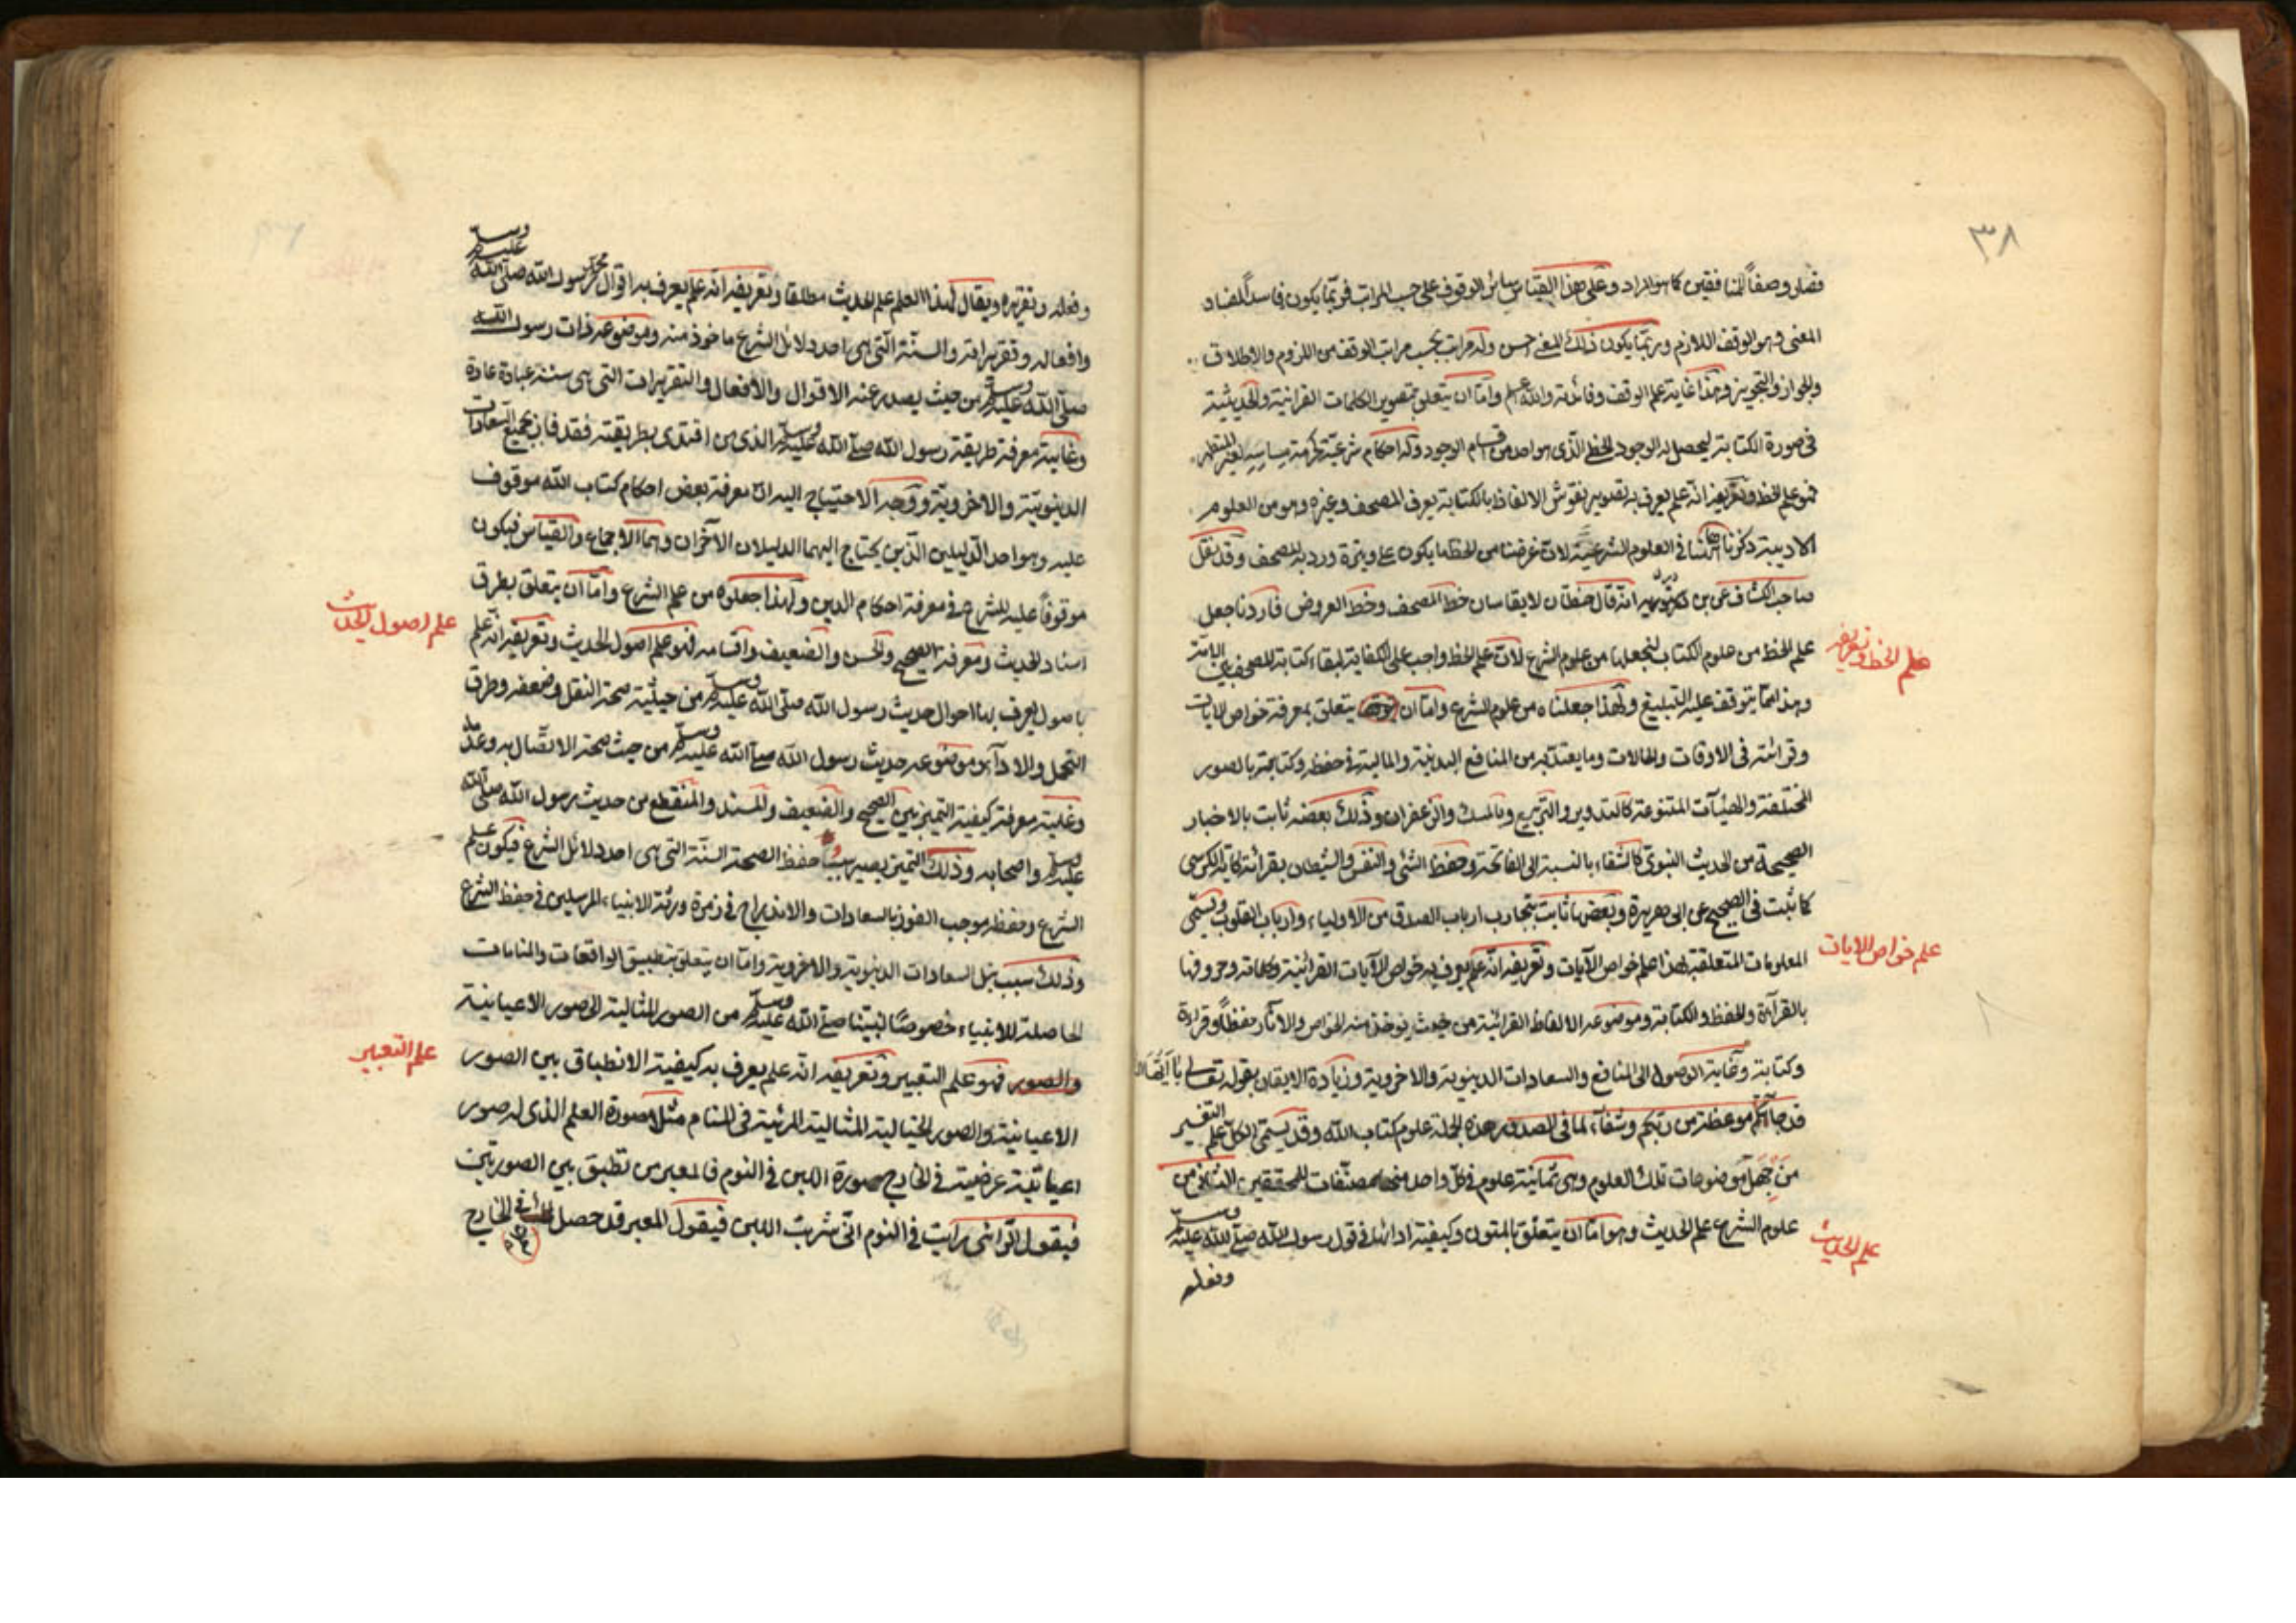 ٣٨
فصار وصفاً للمنافقين كما هو المراد وعلى هذا القياس سائر الوقوف على حسب المراتب فربما يكون فاسداً لفساد
المعنى وهو الوقف اللازم وربما يكون ذلك المعنى حسن وله مراتب بحسب مراتب الوقف من اللزوم والاطلاق
والجواز والتجويز وهذا غاية علم الوقف وفائدته والله اعلم واما ان يتعلق بتصوير الكلمات القرانية والحديثية
في صورة الكتابة ليحصل له الوجود الخطي الذي هو احد من اقسام الوجود وله احكام شرعية كحرمة مساسه لغير المتطهر
فهو علم الخط وتعريفه انه علم يعرف به تصوير نقوش الالفاظ بالكتابة يعرف المصحف وغيره وهو من العلوم
الادبية ذكرناها هنا في العلوم الشرعية لان غرضنا من الخط ما يكون على وتيرة ورد به المصحف وقد نقل
صاحب الكشاف عن بن درستويه انه قال خطان لا يقاسان خط المصحف وخط العروض فاردنا جعل
علم الخط من علوم الكتاب لنجعلها من علوم الشرع لان علم الخط واجب على الكفاية لبقاء كتابة المصحف بين الامة
وهذا مما يتوقف عليه التبليغ ولهذا جعلناه من علوم الشرع واما ان يتعلق بمعرفة خواص الايات
وقرائته في الاوقات والحالات وما يعتد به من المنافع البدنية والمالية في حفظه وكتابته بالصور
المختلفة والهيئات المتنوعة كالتدوير والتربيع وبالمسك والزعفران وذلك بعضه ثابت بالاخبار
الصحيحة من الحديث النبوي كالشفاء بالنسبة الى الفاتحة وحفظ الشئ والنفس والشيطان بقرائة آية الكرسي
كما ثبت في الصحيح عن ابى هريرة وبعضها ثابت بتجارب ارباب الصدق من الاولياء وارباب القلوب ويسمى
المعلومات المتعلقة لهذا علم خواص الآيات وتعريفه انه علم يعرف به خواص الآيات القرائنية وكلماته وحروفها
بالقرآة والحفظ والكتابة وموضوعه الالفاظ القرائنية من حيث يؤخذ منه الخواص والآثار حفظاً وقراءة
وكتابة وغايته الوصول الى المنافع والسعادات الدينوية والاخروية وزيادة الايقان بقوله تعالى يا ايها الناس
قد جاءتكم موعظة من ربكم وشفاء لما في الصدور هذه الجملة علوم كتاب الله وقد يسمى الكل علم التفسير
من جهل موضوعات تلك العلوم وهي ثمانية علوم في كل واحد منها مصنفات للمحققين الثاني من
علوم الشرع علم الحديث وهو اما ان يتعلق بالمتون وكيفية ادائها في قول رسول الله صلى الله عليه وسلم
وفعله
علم الخط وتعريفه
علم خواص الايات
علم الحديث
وفعله وتقريره ويقال لهذا العلم علم الحديث مطلقا وتعريفه انه علم يعرف به اقوال محمد رسول الله صلى الله عليه وسلم
وافعاله وتقريراته والسنة التي هي احد دلائل الشرع ماخوذ منه وموضوعه ذات رسول الله
صلى الله عليه وسلم من حيث يصدر عنه الاقوال والأفعال والتقريرات التي هي سننه عبادة عادة
وغايته معرفة طريقة رسول الله صلى الله عليه وسلم الذي من اقتدى بطريقته فقد فاز بجميع السعادات
الدينوية والاخروية ووجه الاحتياج اليه ان معرفة بعض احكام كتاب الله موقوف
عليه وهو احد الدليلين الذين يحتاج اليهما الدليلان الآخران وهما الاجماع والقياس فيكون
موقوفاً عليه للشرع في معرفة احكام الدين ولهذا جعلوه من علم الشرع واما ان يتعلق بطرق
اسناد الحديث ومعرفة الصحيح والحسن والضعيف واقسامه فهو علم اصول الحديث وتعريفه انه علم
باصول يعرف بها احوال حديث رسول الله صلى الله عليه وسلم من حيثية صحة النقل وضعفه وطرق
التحمل والادآء وموضوعه حديث رسول الله صلى الله عليه وسلم من حيث صحة الاتصال به وعدمه
وغايته معرفة كيفية التمييز بين الصحيح والضعيف والمسند والمنقطع من حديث رسول الله صلى الله
عليه وسلم واصحابه وذلك التميز يصير سببا حفظ الصحة السنة التي هي احد دلائل الشرع فيكون علم
الشرع وحفظه موجب الفوز بالسعادات والاندراج في زمرة ورثة الانبياء المرسلين في حفظ الشرع
وذلك سبب نيل السعادات الدينوية والاخروية واما ان يتعلق بتطبيق الواقعات والمنامات
الحاصلة للانبياء خصوصًا لنبينا صلى الله عليه وسلم من الصور المثالية الى صور الاعيانية
والصور فهو علم التعبير وتعريفه انه علم يعرف به كيفية الانطباق بين الصور
الاعيانية والصور الخيالية المثالية المرئية في المنام مثلا صورة العلم الذي له صور
اعيانية عرضيته في الخارج صورة اللبن في النوم فالمعبر من تطبق بين الصورتين
فيقول الرائى رايت في النوم انى شربت اللبن فيقول المعبر قد حصل لك في الخارج
علم اصول الحديث
علم التعبير